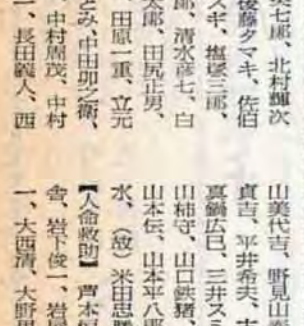 美七郎、北村輝次
後藤タマキ、佐伯
スギ、塩塚三郎、
郎、清水彦七、白
太郎、田尻正男、
、田原一重、立元
とみ、中田卯之衛、
、中村周茂、中村
一、長田義人、西
山美代吉、野見山
貞吉、平井希夫、
真鍋広巳、三井ス
山柿守、山口鉄猪、
山本伝、山本平八郎
水、（故）米田忠
【人命救助】芦本
舎、岩下俊一、岩
一、大西清、大野